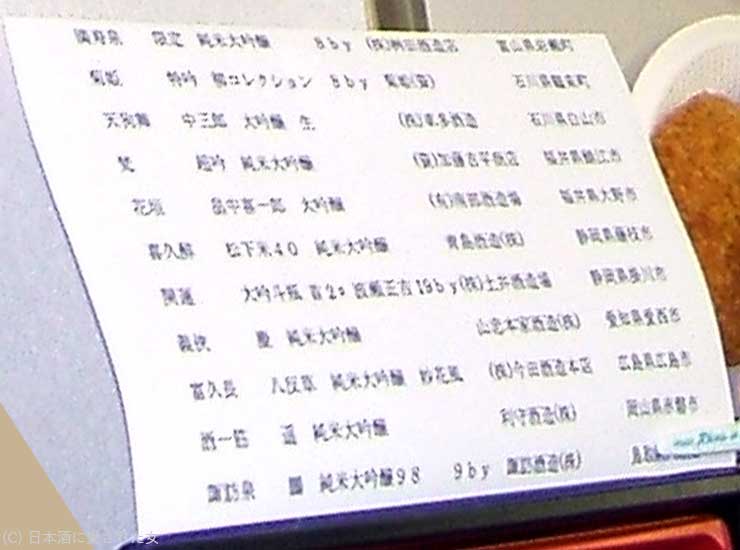 満寿泉 限定 純米大吟醸 8by (株)桝田酒造店 富山県岩瀬町
菊姫 特吟 柳コレクション 8by 菊姫(資)
天狗舞 中三郎 大吟醸 生 (株)車多酒造 石川県白山市
梵 超吟 純米大吟醸 (資)加藤吉平商店 福井県鯖江市
花垣 畠中喜一郎 大吟醸 (有)南部酒造場 福井県大野市
喜久醉 松下米40 純米大吟醸 青島酒造(株) 静岡県藤枝市
開運 大吟斗瓶 波瀬正吉 19by (株)土井酒造場 静岡県掛川市
義侠 慶 純米大吟醸 山忠本家酒造(株) 愛知県愛西市
富久長 八反草 純米大吟醸 (株)今田酒造本店 広島県広島市
酒一筋 純米大吟醸 利守酒造(株) 岡山県赤磐市
諏訪泉 鵬 純米大吟醸98 9by 諏訪酒造(株) 鳥取
(C) 日本酒に